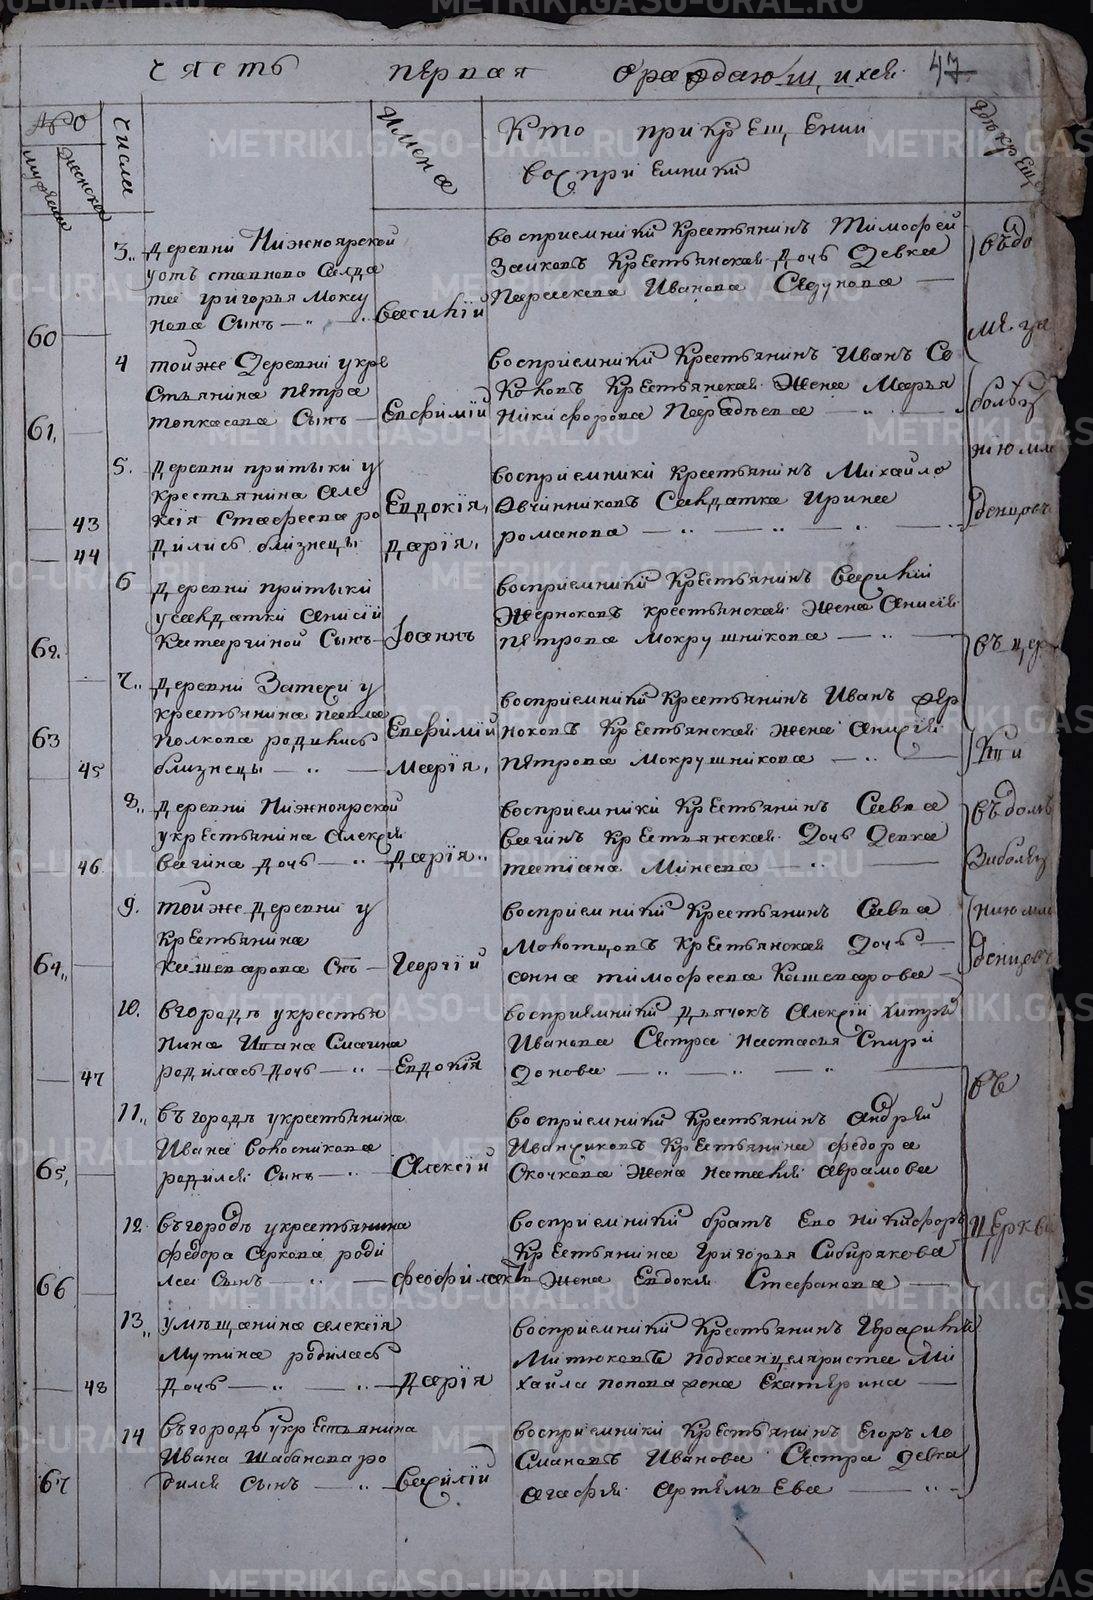 Часть первая ораждающихся 47
№
мужеска
женска
числа
Имена
Кто при крещении
восприемники
3. деревни Нижноярской
усть степново Салда
та григорья Моксу
нова Сынъ
Василій
восприемники Крестьянинъ Тимофей
Зайковъ Крестьянская дочь девка
Параскева Иванова
въ до
60
ме за
4 тойже деревни у кре
стьянина Петра
Сынъ
Евфимій
восприемники Крестьянинъ Иванъ Со
коловъ Крестьянская Жена Марья
Никифорова
61
болез
нію мла
денцовъ
5. деревни притыки у
крестьянина Але
ксія Стафеева ро
дились близнецы
Евдокія,
дарія.
восприемники Крестьянинъ Михайло
Овчинниковъ Салдатка Ирина
романова
43
44
6 деревни притыки
у салдатки Анисіи
Катаргиной Сынъ
Іоаннъ
восприемники Крестьянинъ Василій
Жерноковъ крестьянская жена Анисія
петрова Мокрушникова
62.
въ цер
кви
7. деревни Затечи у
крестьянина павла
полкова родились
близнецы
Евфимій
Марія,
восприемники Крестьянинъ Иванъ жер
ноковъ Крестьянская жена Анисія
петрова Мокрушникова
63
45
8. деревни Нижноярской
у крестьянина Алексія
вагина дочь
дарія
восприемники Крестьянинъ Савва
вагинъ Крестьянская дочь девка
татіана Минеева
46
въ доме
за болез
нию мла
денцовъ
9. тойже деревни у
Крестьянина
Кашеварова Снъ
Георгій
восприемники Крестьянинъ Савва
Молотцовъ Крестьянская дочь
анна тимофеева Кашеварова
64
10. вгороде у крестья
нина Ивана Смагина
родилась дочь
Евдокія
восприемники дьячокъ Алексій
Иванова Сестра настасья Спири
донова
47
въ
11. въ городе у крестьянина
Ивана Волосникова
родился Сынъ
Алексій
восприемники Крестьянинъ Андрей
Иванчиковъ Крестьянина федора
Скочкова жена наталья Аврамова
65
12. въ городе у крестьянина
федора Серкова роди
лся Сынъ
феофилактъ
восприемники братъ Ево никифоръ
Крестьянина Григорья Сибирякова
Жена Евдокия Стефанова
66
церкви
13. у мещанина алексія
Мутина родилась
дочь
дарія
восприемники Крестьянинъ Ираклій
Митюковъ подканцеляриста Ми
хайла попова жена Екатерина
48
14 въ городе у крестьянина
Ивана Шабанова ро
дился Сынъ
Василій
восприемники Крестьянинъ Егоръ Ло
смановъ Иванова Сестра девка
агафья Артемьева
67
METRIKI.GASO-URAL.RU